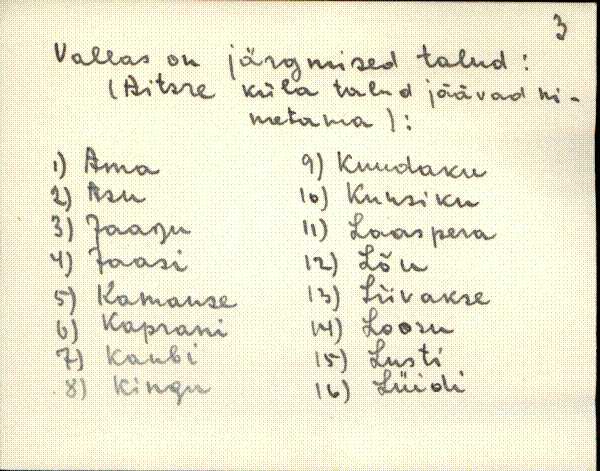 3
Vallas on järgmised talud:
(Aitsre küla talud jäävad ni-
metama):
1) Ama
2) Asu
3) Jaagu
4) Jaasi
5) Kamanse
6) Kaprani
7) Kaubi
8) Kingu
9) Kuudaku
10) Kuusiku
11) Laaspera
12) Lõu
13) Liivakse
14) Loosu
15) Lusti
16) Lüüdi